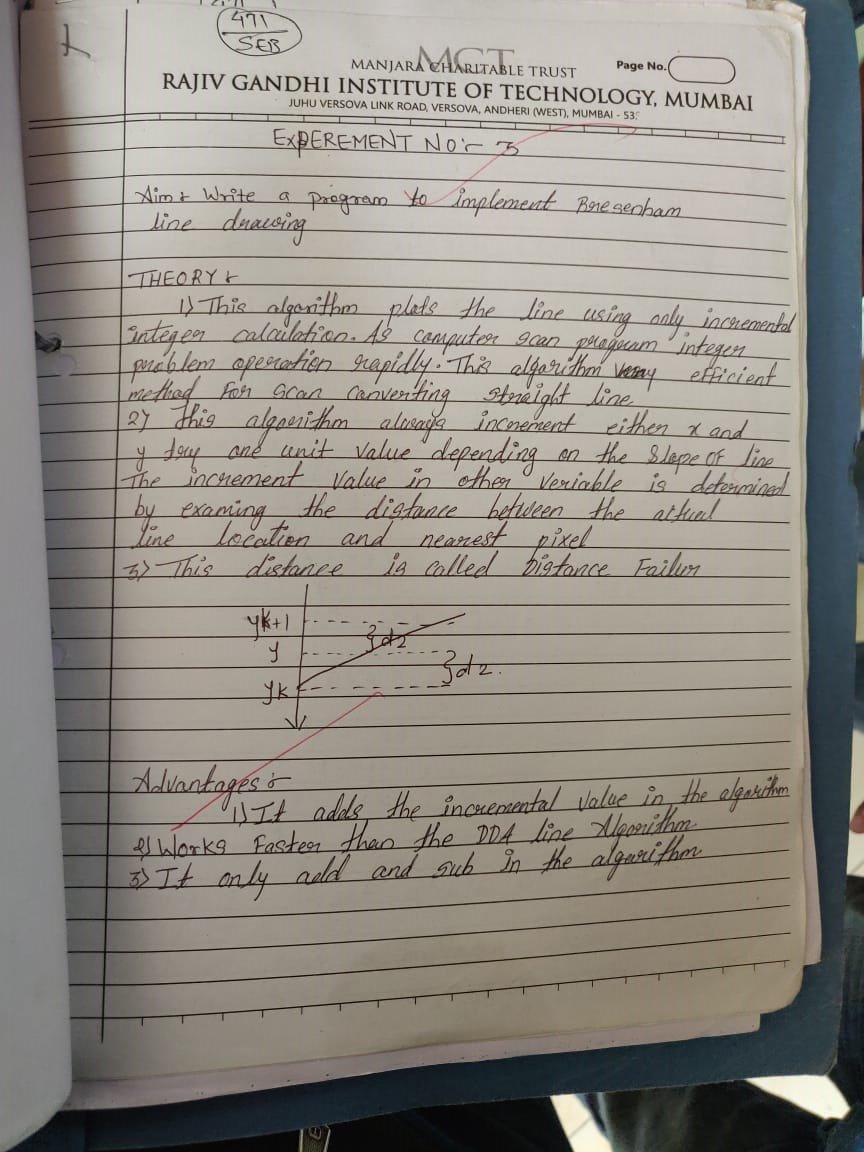 471
SEB
MCT
MANJARA CHARITABLE TRUST
Page No.
RAJIV GANDHI INSTITUTE OF TECHNOLOGY, MUMBAI
JUHU VERSOVA LINK ROAD, VERSOVA, ANDHERI (WEST), MUMBAI - 53.
EXPEREMENT NO:- 3
Aim:- Write a program to implement Bresenham
line drawing
THEORY:-
1) This algorithm plots the line using only incremental
integer calculation. As computer scan program integer
problem operation rapidly. This algorithm very efficient
method For scan converting straight line
2) This algorithm always increment either x and
y by one unit value depending on the slope of line
The increment value in other veriable is determined
by examing the distance between the actual
line location and nearest pixel
3) This distance is called Distance Failur
yk+1
d2
y
d2.
yk
Advantages:-
1) It adds the incremental value in the algorithm
2) Works Faster than the DDA line Algorithm
3) It only add and sub in the algorithm